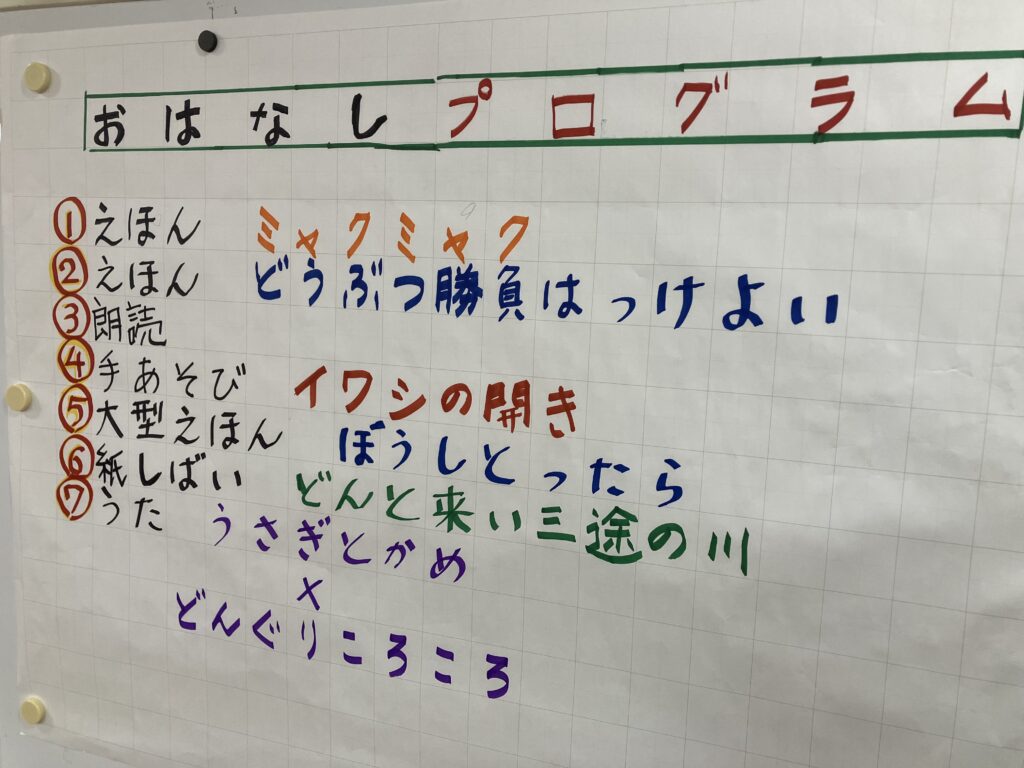 おはなしプログラム
①えほん ミャクミャク
②えほん どうぶつ勝負はっけよい
③朗読
④手あそび イワシの開き
⑤大型えほん ぼうしとったら
⑥紙しばい どんと来い三途の川
⑦うた うさぎとかめ
×
どんぐりころころ